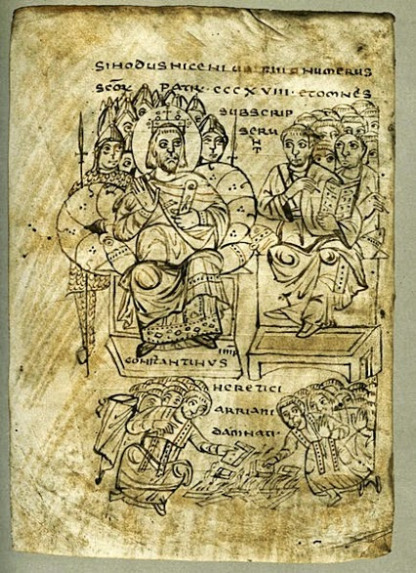 SINODUS NICENI UBI NUMERUS
SCOR PATR · CCCXVIII · ET OMNES
SUBSCRIP
SERU
NT
CONSTANTINUS
HERETICI
ARRIANI
DAMNATI ·